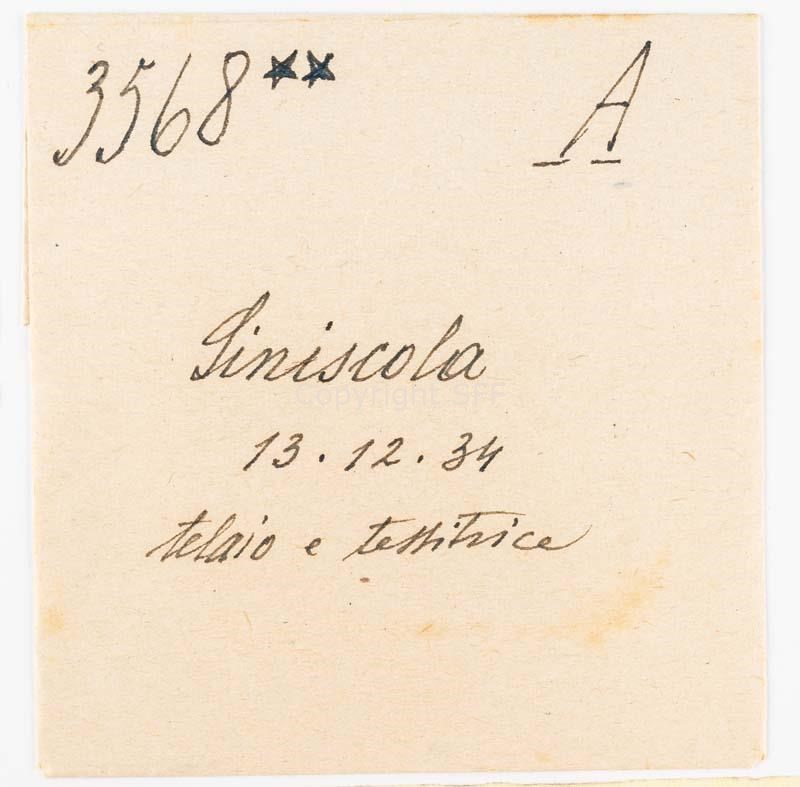 3568** A
Siniscola
Copyright SFF
13.12.34
telaio e tessitrice